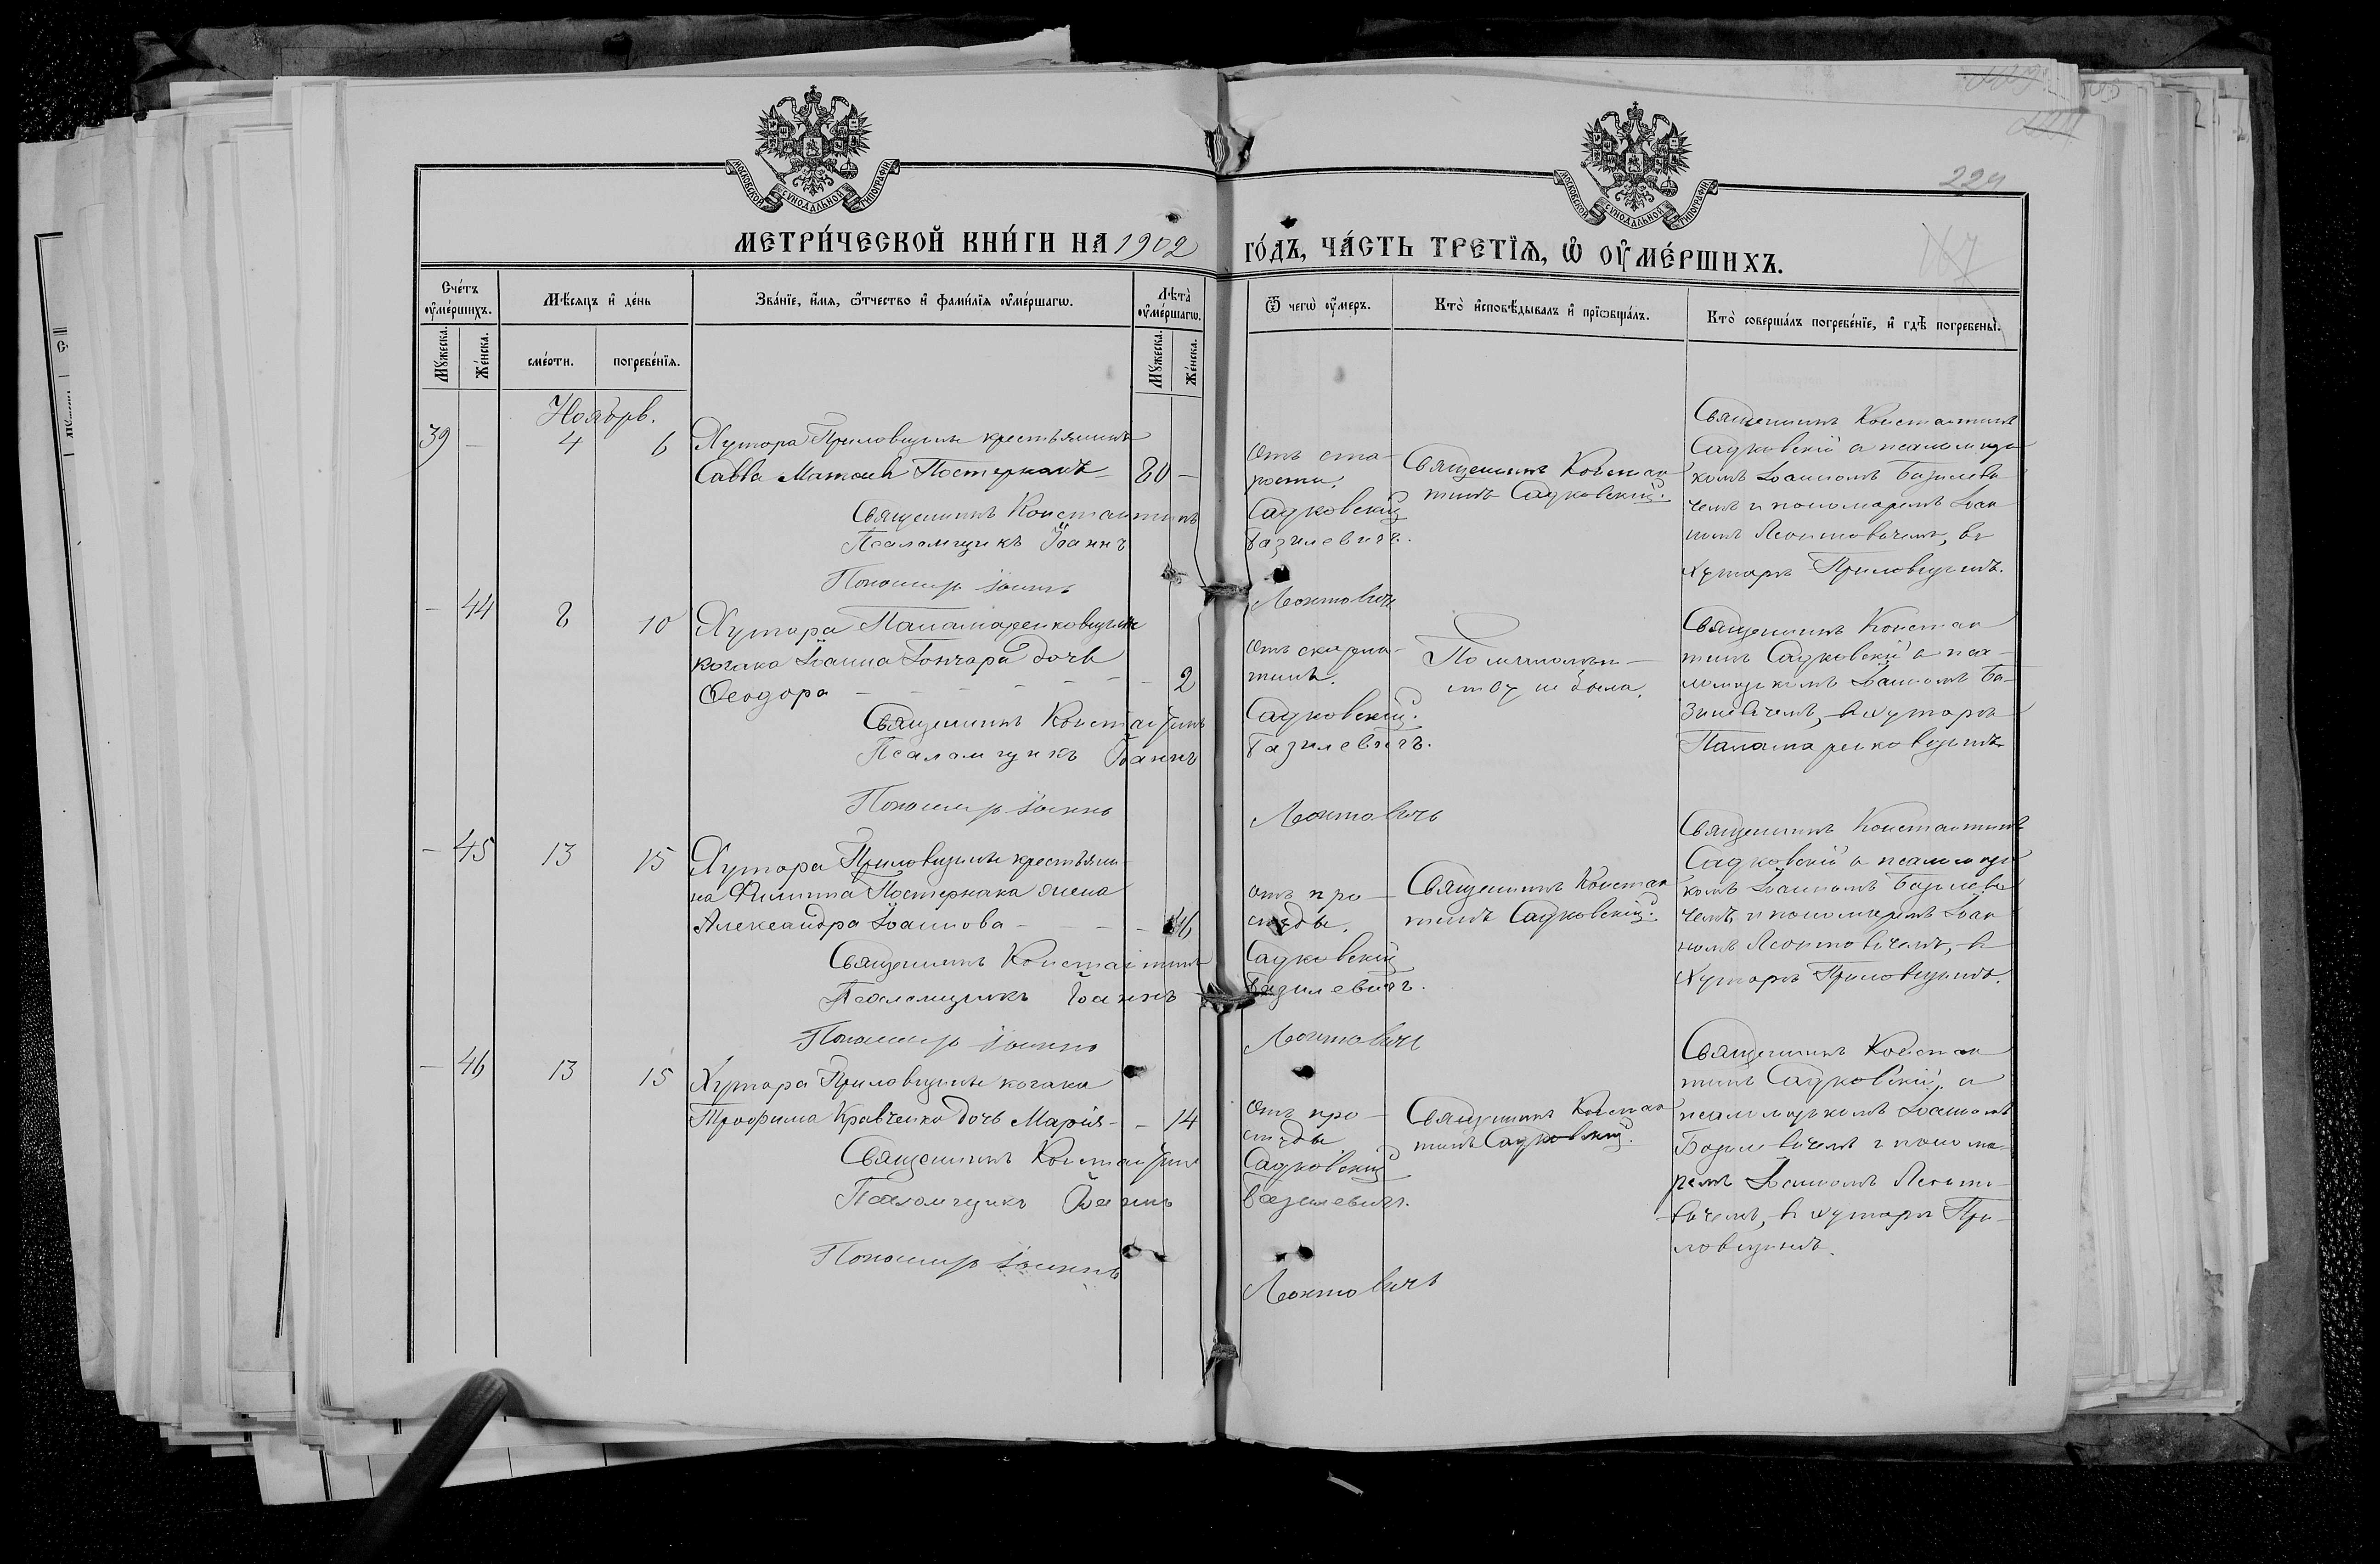 МОСКОВСКОЙ СѴНОДАЛЬНОЙ ТИПОГРАФІИ
МОСКОВСКОЙ СѴНОДАЛЬНОЙ ТИПОГРАФІИ
229
МЕТРИ́ЧЕСКОЙ КНИ́ГИ НА 1902
ГО́ДЪ, ЧА́СТЬ ТРЕТІѦ, Ѡ҆ ОУ҆МЕ́РШИХЪ.
Сче́тъ оу҆ме́ршихъ.
Мѣ́сяцъ и҆ де́нь
Зва́нїе, и҆́мя, ѻ҆́тчество и҆ фами́лїя оу҆ме́ршагѡ.
Лѣта̀ оу҆ме́ршагѡ.
Ѿ чегѡ̀ оу҆́меръ.
Кто̀ и҆сповѣ́дывалъ и҆ прїѡбща́лъ.
Кто̀ соверша́лъ погребе́нїе, и҆ гдѣ̀ погребены̀.
Мꙋ́жеска.
Же́нска.
сме́рти.
погребе́нїя.
Мꙋ́жеска.
Же́нска.
Ноябрь.
39 - 4 6
Хутора Приловщины крестьянинъ
Савва Матѳіевъ Постернакъ - 80 -
Священникъ Константинъ
Псаломщикъ Іоаннъ
Пономарь Іоаннъ
От ста-
рости.
Садковскій
Базилевичъ.
Леонтовичъ
Священникъ Констан-
тинъ Садковскій.
Священникъ Константинъ
Садковскій с псаломщи-
комъ Іоанномъ Базилеви-
чемъ и пономаремъ Іоан-
номъ Леонтовичемъ, въ
хуторѣ Приловщинѣ.
- 44 8 10
Хутора Паламаренковщины
козака Іоанна Гончара дочь
Ѳеодора - - - - - - 2
Священникъ Константинъ
Псаломщикъ Іоаннъ
Пономарь Іоаннъ
Отъ скарла-
тины.
Садковскій.
Базилевичъ.
Леонтовичъ
По малолѣт-
ству не была.
Священникъ Констан-
тинъ Садковскій с пса-
ломщикомъ Іоанномъ Ба-
зилевичемъ, въ хуторѣ
Паламаренковщинѣ
- 45 13 15
Хутора Приловщины крестьяни-
на Филиппа Постернака жена
Александра Іоаннова - - - -
Священникъ Константинъ
Псаломщикъ Іоаннъ
Пономарь Іоаннъ
отъ про-
студы.
Садковскій
Базилевичъ.
Леонтовичъ
Священникъ Констан-
тинъ Садковскій.
Священникъ Константинъ
Садковскій с псаломщи-
комъ Іоанномъ Базилеви-
чемъ и пономаремъ Іоан-
номъ Леонтовичемъ, въ
хуторѣ Приловщинѣ.
- 46 13 15
Хутора Приловщины козака
Трофима Кравченко дочь Марія - - 14
Священникъ Константинъ
Псаломщикъ Іоаннъ
Пономарь Іоаннъ
Отъ про-
студы
Садковскій
Базилевичъ.
Леонтовичъ
Священникъ Констан-
тинъ Садковскій.
Священникъ Констан-
тинъ Садковскій, с
псаломщикомъ Іоанномъ
Базилевичемъ и понома-
ремъ Іоанномъ Леонто-
вичемъ, въ хуторѣ При-
ловщинѣ.